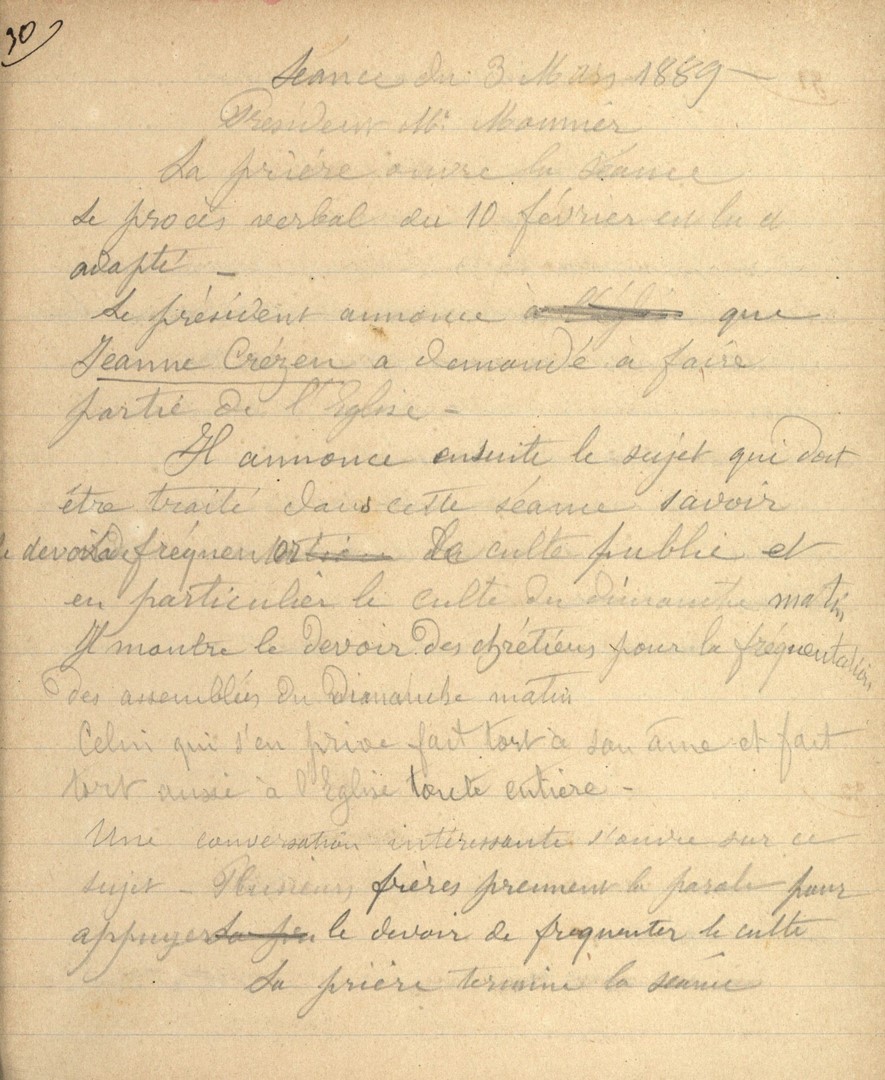 30
Séance du 3 Mars 1889 -
Président Mr. Monnier
La prière ouvre la séance
Le procès verbal du 10 février est lu et
adapté -
Le président annonce à l'Eglise que
Jeanne Crézen a demandé à faire
partie de l'Eglise -
Il annonce ensuite le sujet qui doit
être traité dans cette séance savoir
le devoir de fréquenter le culte public et
en particulier le culte du dimanche matin
Il montre le devoir des chrétiens pour la fréquentation
des assemblées du Dimanche matin
Celui qui s'en prive fait tort à son âme et fait
tort aussi à l'Eglise toute entière -
Une conversation intéressante s'ouvre sur ce
sujet - Plusieurs frères prennent la parole pour
appuyer le devoir de fréquenter le culte
La prière termine la séance